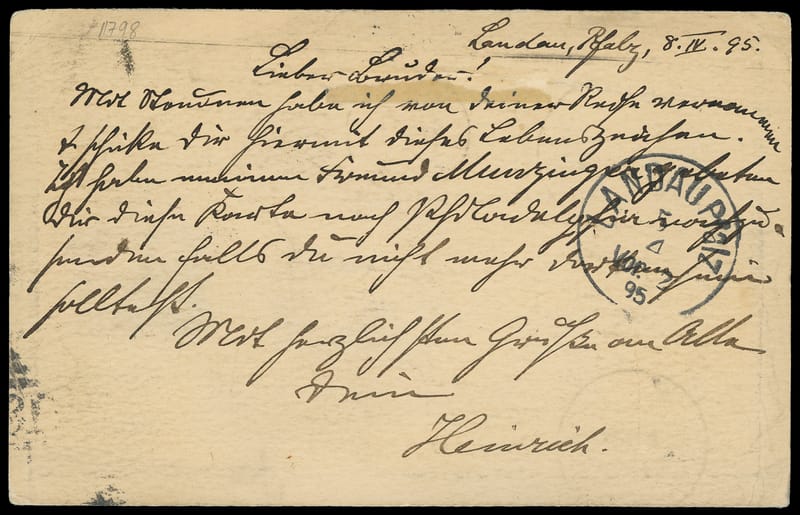 11798
Landau, Pfalz, 8. IV. 95.
Lieber Bruder!
Mit Staunen habe ich von deiner Reise vernommen
& schicke Dir hiermit dieses Lebenszeichen.
Ich habe meinen Freund Munzinger gebeten
Dir diese Karte nach Philadelphia nachzu-
senden falls du nicht mehr dort sein
solltest.
Mit herzlichsten Grüßen an Alle
Dein
Heinrich.
LANDAU PFLZ
5
4
VOR. 
95